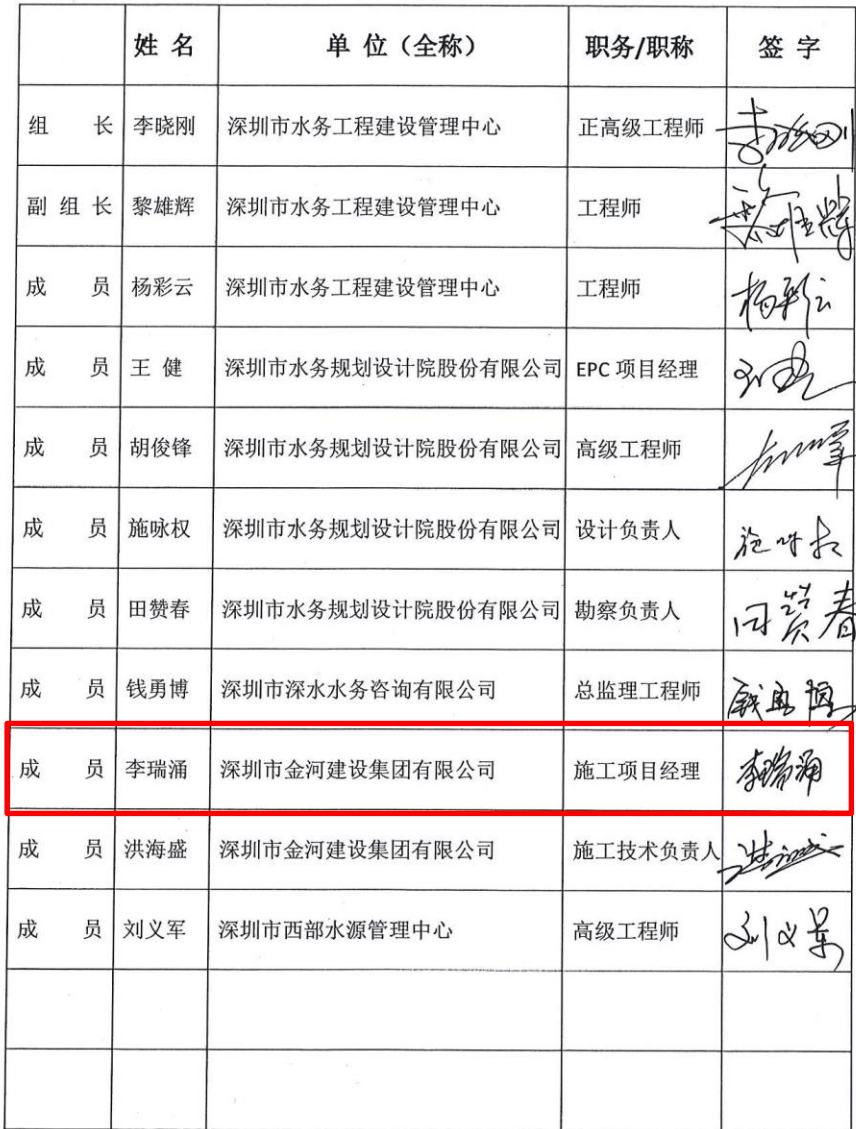 姓 名 单 位（全称） 职务/职称 签 字
组 长 李晓刚 深圳市水务工程建设管理中心 正高级工程师 李晓刚
副 组 长 黎雄辉 深圳市水务工程建设管理中心 工程师 黎雄辉
成 员 杨彩云 深圳市水务工程建设管理中心 工程师 杨彩云
成 员 王 健 深圳市水务规划设计院股份有限公司 EPC 项目经理
成 员 胡俊锋 深圳市水务规划设计院股份有限公司 高级工程师
成 员 施咏权 深圳市水务规划设计院股份有限公司 设计负责人 施咏权
成 员 田赞春 深圳市水务规划设计院股份有限公司 勘察负责人 田赞春
成 员 钱勇博 深圳市深水水务咨询有限公司 总监理工程师 钱勇博
成 员 李瑞涌 深圳市金河建设集团有限公司 施工项目经理 李瑞涌
成 员 洪海盛 深圳市金河建设集团有限公司 施工技术负责人
成 员 刘义军 深圳市西部水源管理中心 高级工程师 刘义军